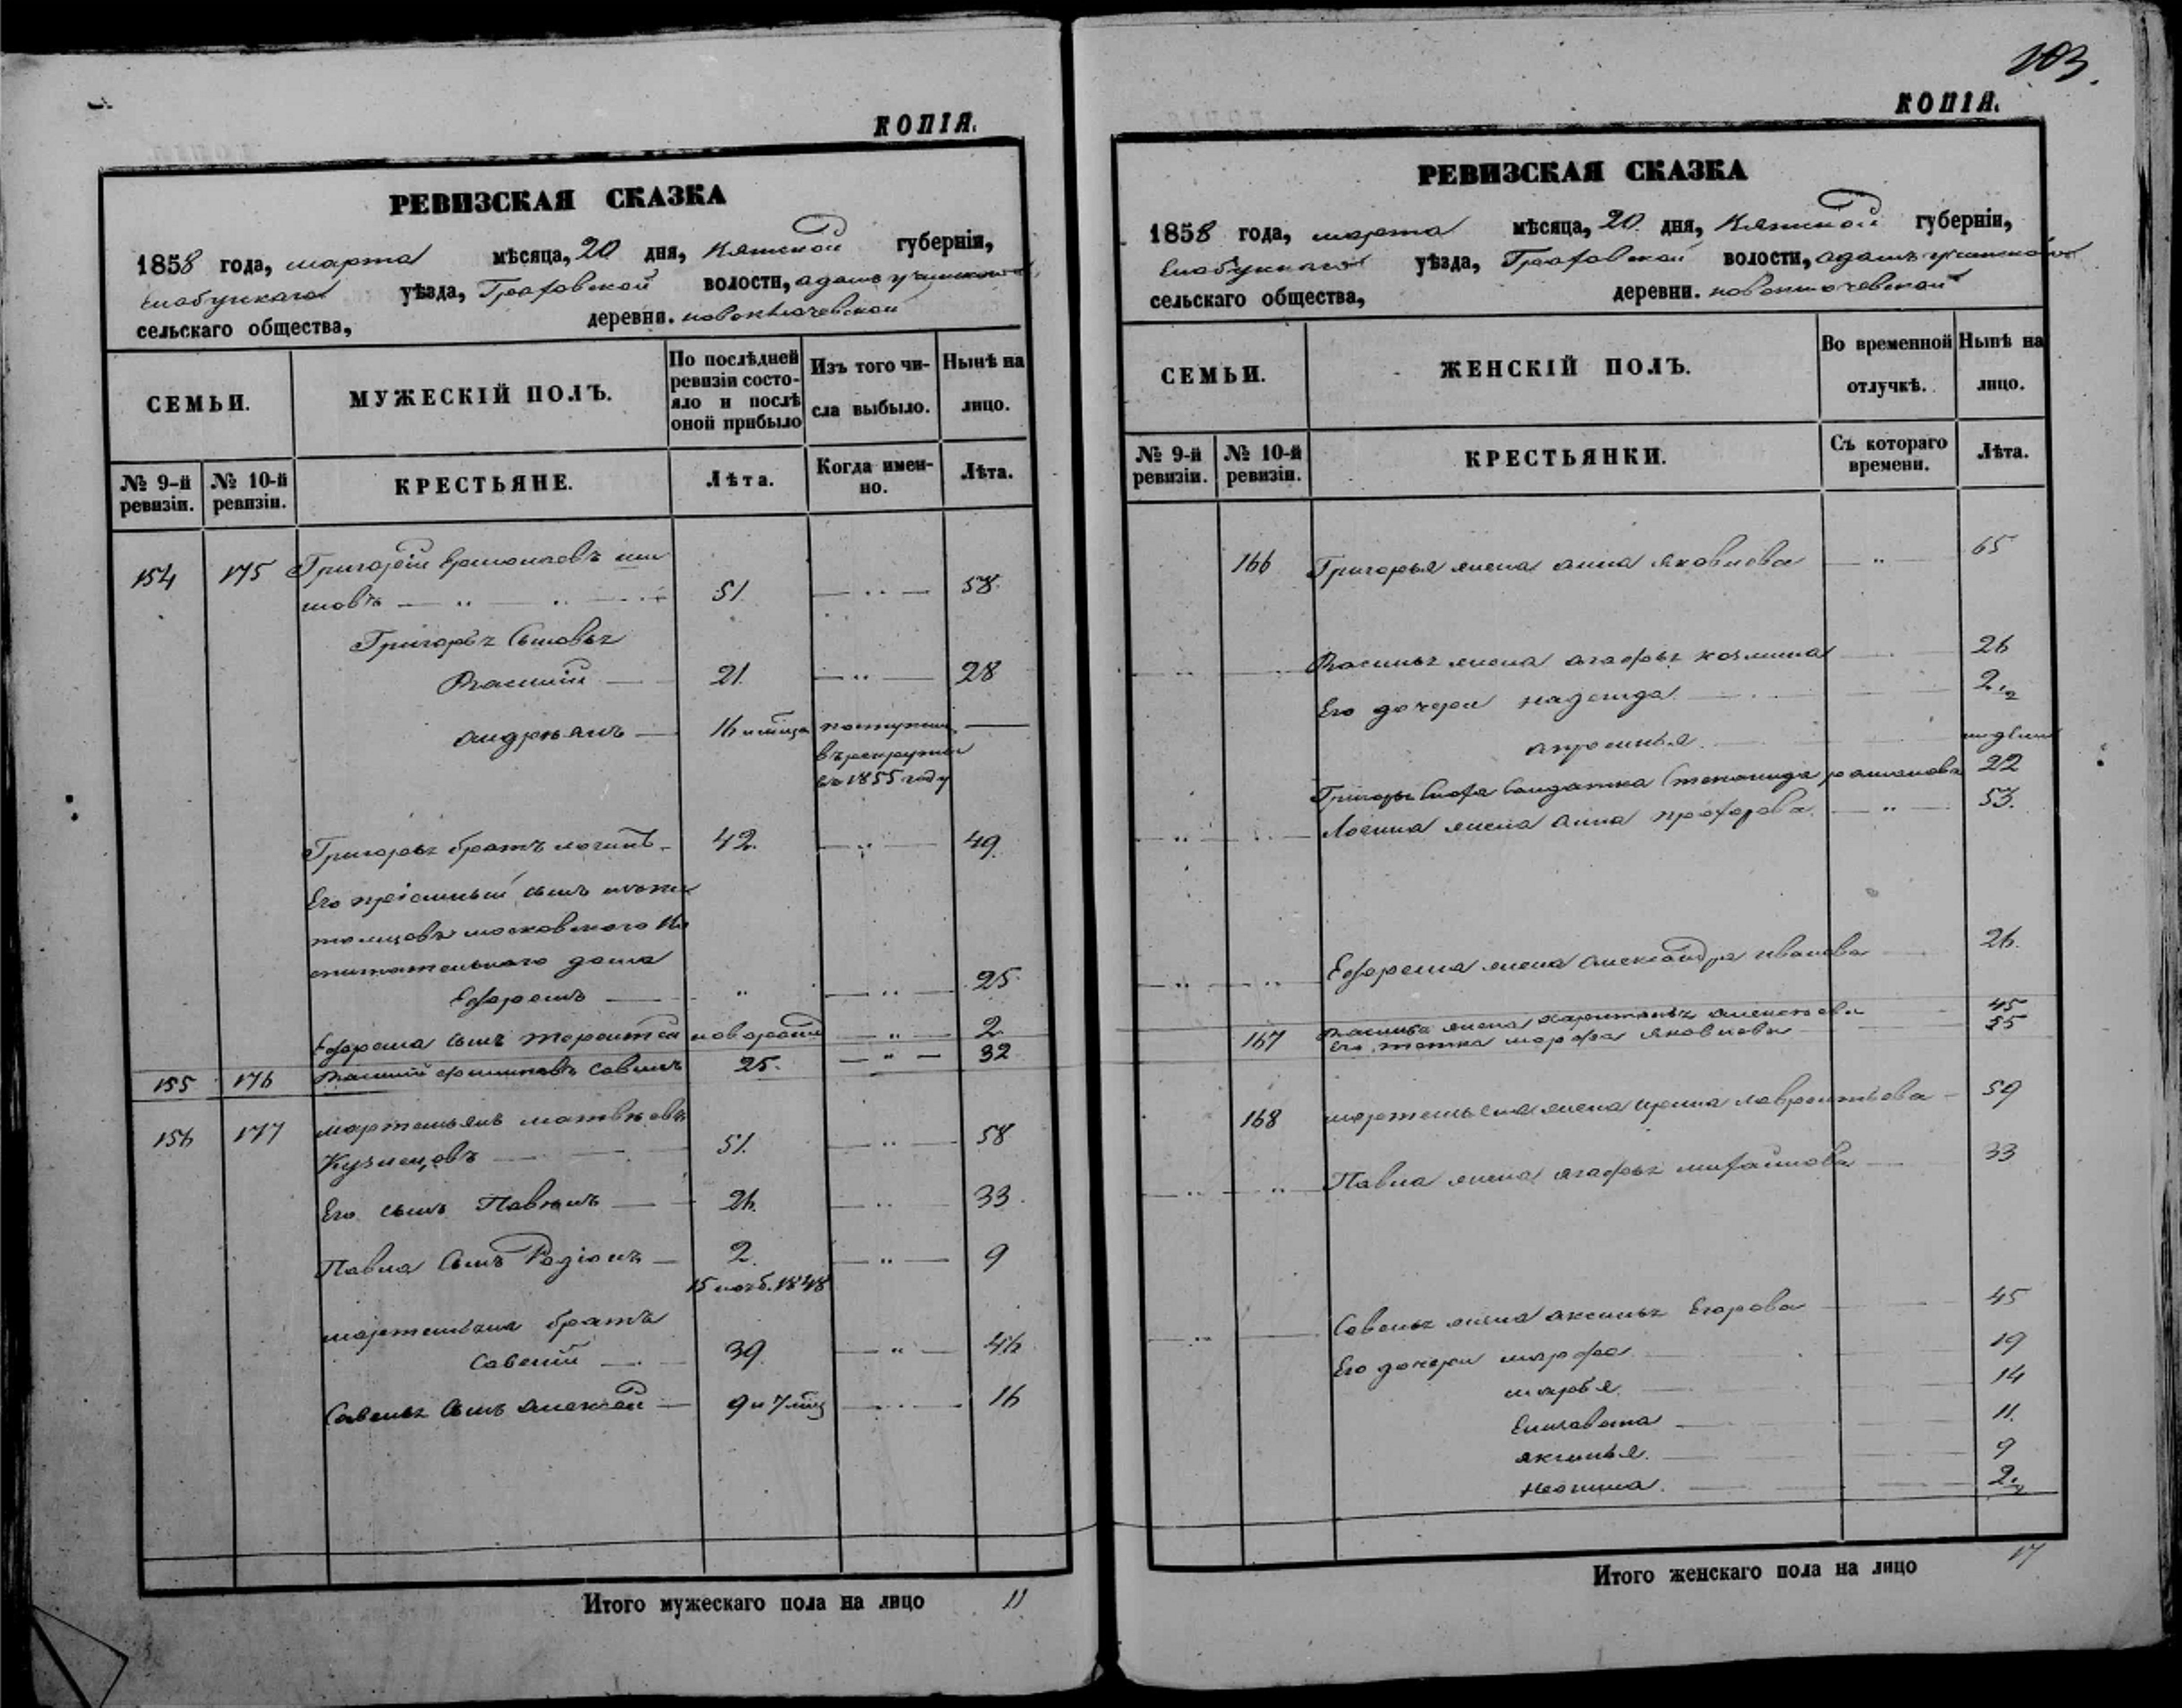 КОПІЯ.
РЕВИЗСКАЯ СКАЗКА
1858 года, марта мѣсяца, 20 дня, Вятской губерніи,
Елабужскаго уѣзда, Граховской волости,
сельскаго общества, деревни. новоключевской
СЕМЬИ. МУЖЕСКІЙ ПОЛЪ. По послѣдней ревизіи состояло и послѣ оной прибыло Изъ того числа выбыло. Нынѣ на лицо.
№ 9-й ревизіи. № 10-й ревизіи. КРЕСТЬЯНЕ. Лѣта. Когда именно. Лѣта.
154 175 Григорій
51. 58.
Григорьъ Сыновья
Василій 21. 28
андреянъ 16 поступилъ
въ рекруты
въ 1855 году
Григорья братъ логинъ 42. 49.
Его пріемный сынъ
московского
спитательнаго дома
Ефремъ 25.
Ефрема сынъ терентей 2
155 176 Василій савинъ 25. 32
156 177 мартемьянъ матвѣевъ
Кузнецовъ 51. 58
Его сынъ Павелъ 26. 33.
Павла Сынъ Родіонъ 2. 9
15 нояб. 1848
мартемьяна братъ
Савелій 39. 46
Савелья Сынъ алексѣй 9 и 7 мѣц 16
Итого мужескаго пола на лицо 11
103.
КОПІЯ.
РЕВИЗСКАЯ СКАЗКА
1858 года, марта мѣсяца, 20. дня, Вятской губерніи,
Елабужскаго уѣзда, Граховской волости,
сельскаго общества, деревни. новоключевской
СЕМЬИ. ЖЕНСКІЙ ПОЛЪ. Во временной отлучкѣ. Нынѣ на лицо.
№ 9-й ревизіи. № 10-й ревизіи. КРЕСТЬЯНКИ. Съ котораго времени. Лѣта.
166 Григорья жена анна яковлева 65
Василья жена агафья козмина 26
Его дочери надежда
22
Логина жена анна прохорова. 53.
Ефрема жена александра иванова 26.
Василья жена 45
167 Его тетка марфа яковлева 55
168 мартемьяна жена ирина лаврентьева 59
Павла жена агафья михайлова 33
Савелья жена аксинья Егорова 45
Его дочери марфа 19
марья. 14
Елизавета 11.
аксинья. 9
Итого женскаго пола на лицо 17